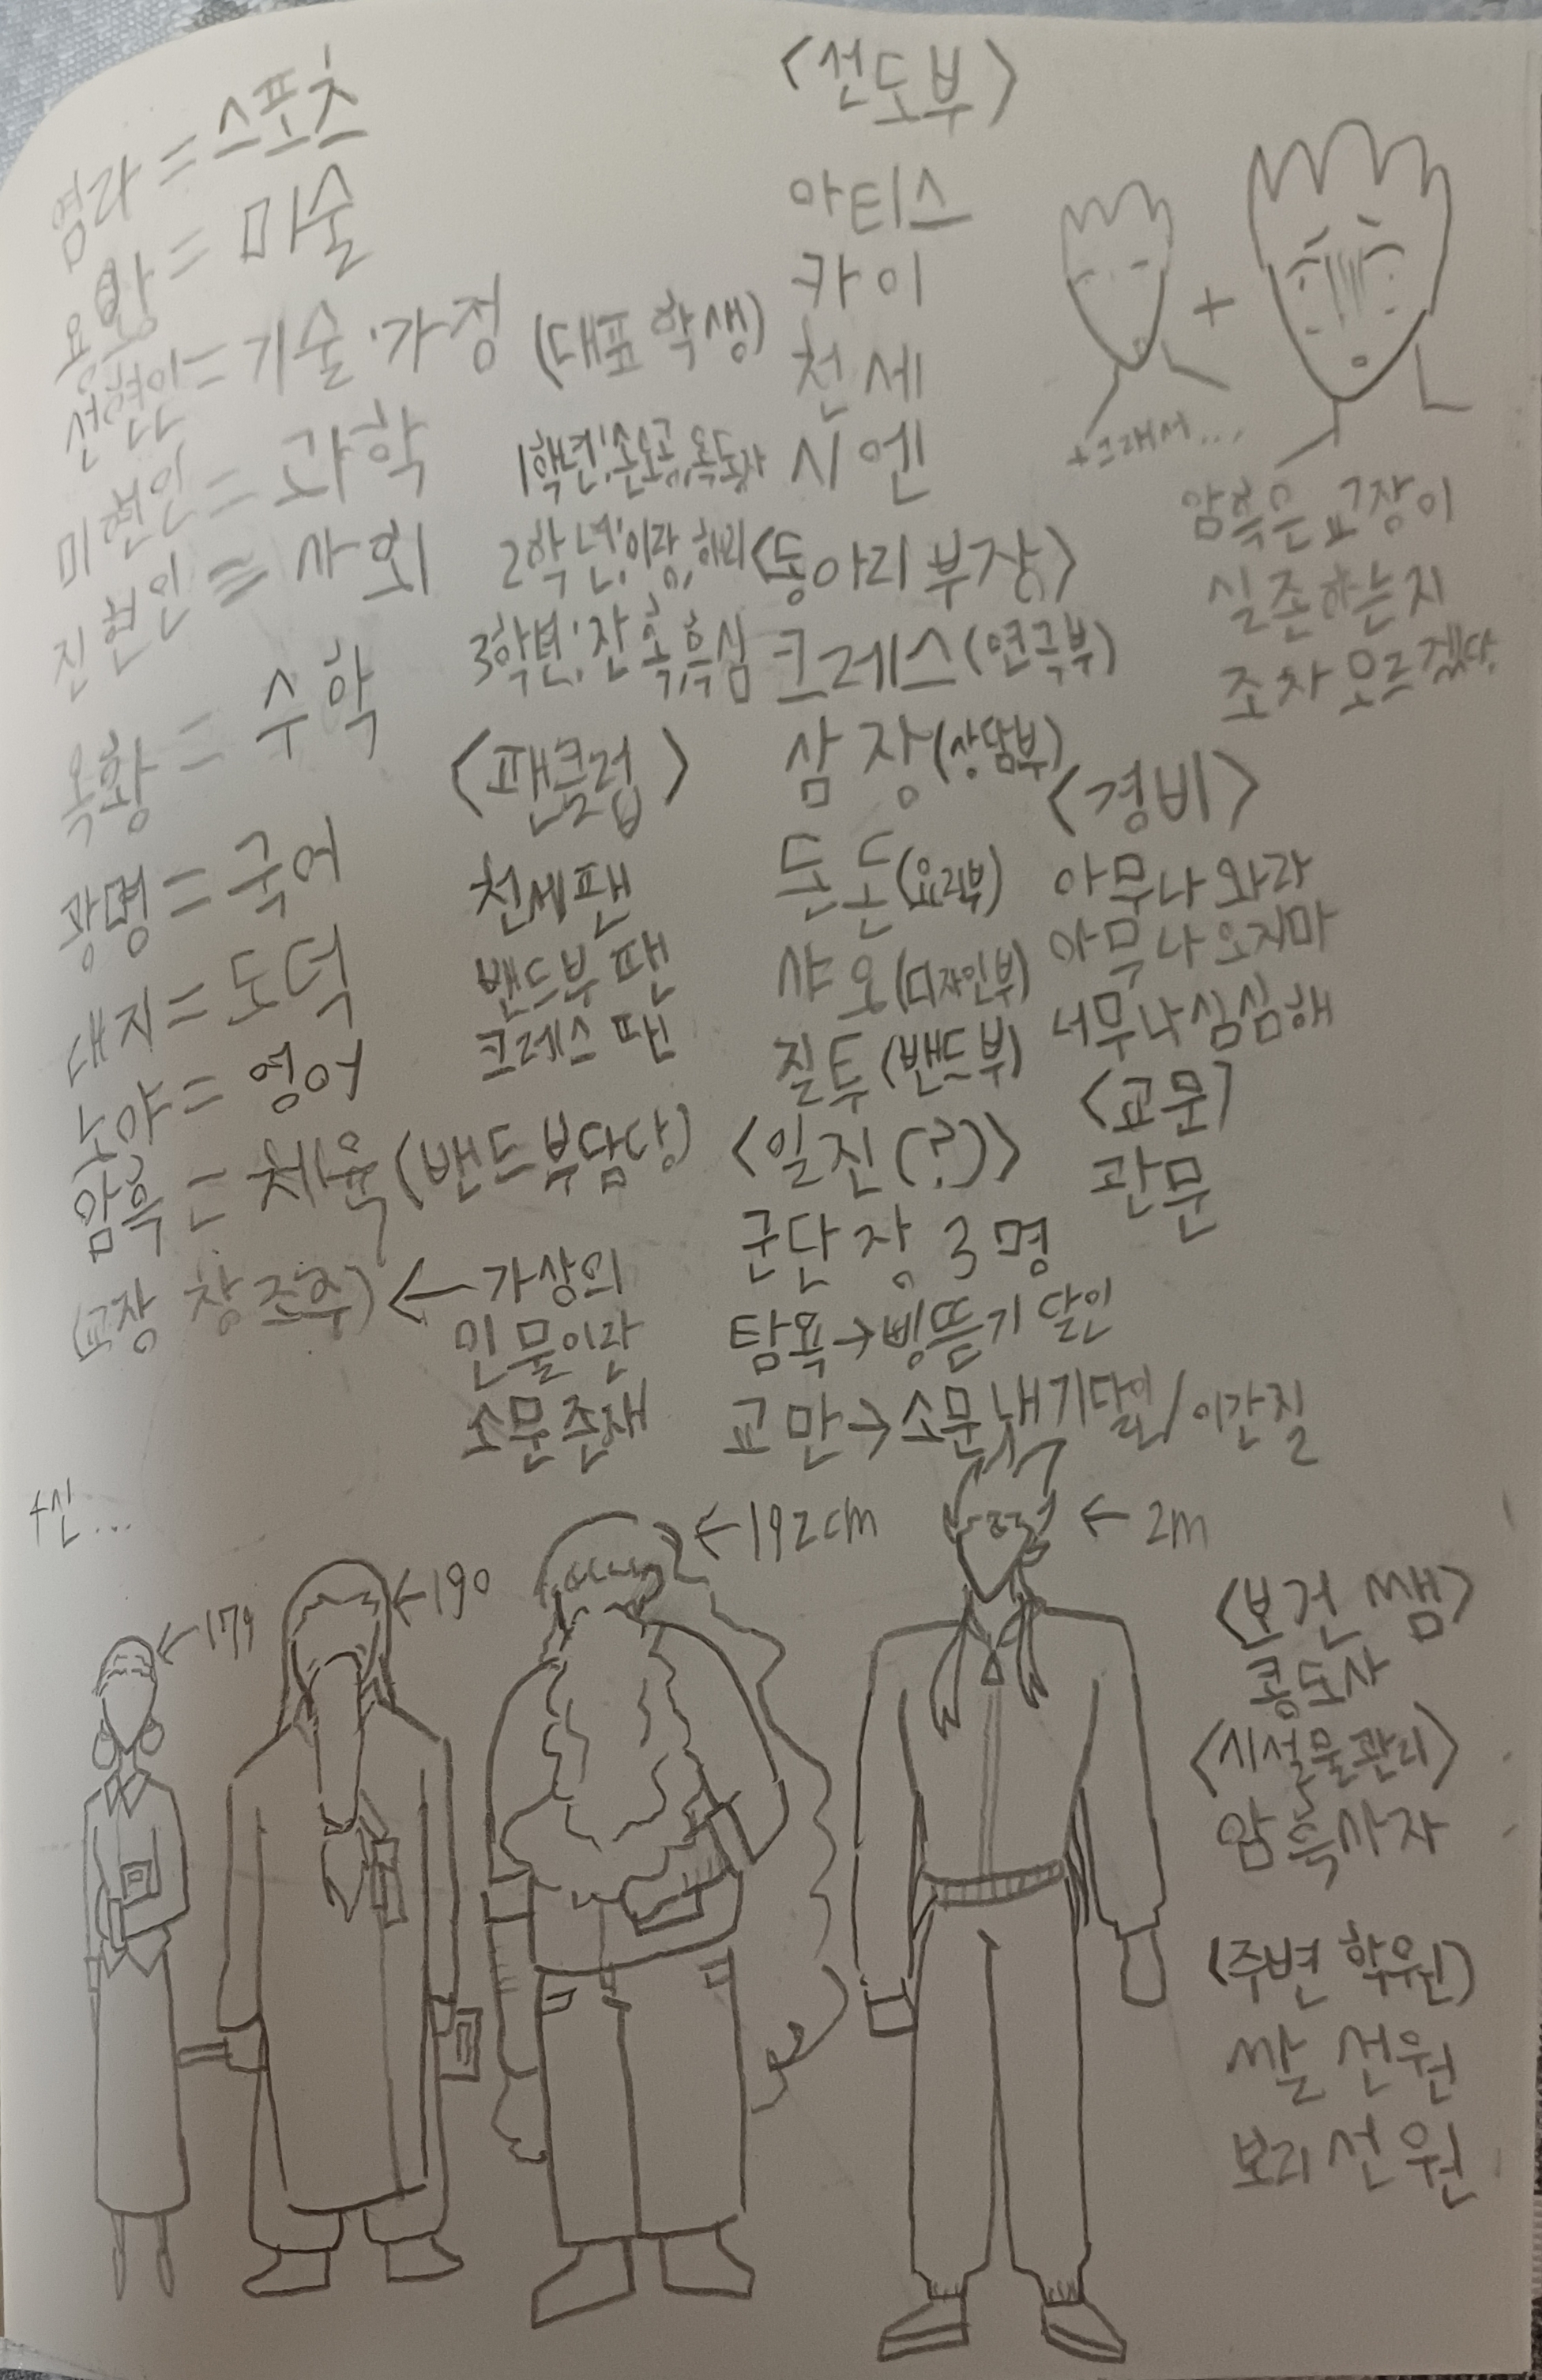 염라 = 스포츠
용왕 = 미술
선현인 = 기술·가정
미현인 = 과학
진현인 = 사회
옥황 = 수학
광명 = 국어
대지 = 도덕
노야 = 영어
암흑 = 체육 (밴드부담당)
(교장 창조주) ← 가상의
인물이란
소문존재
(대표 학생)
1학년: 손오공, 옥동자
2학년: 이랑, 하리
3학년: 잔혹, 흑심
<팬클럽>
천세팬
밴드부 팬
크레스 팬
<선도부>
아티스
카이
천세
시엔
<동아리 부장>
크레스 (연극부)
삼장 (상담부)
돈돈 (요리부)
샤오 (디자인부)
질투 (밴드부)
<일진(?)>
군단장 3명
탐욕 → 삥뜯기 달인
교만 → 소문내기달인 / 이간질
+
+그래서...
암흑은 교장이
실존하는지
조차 모르겠다.
<경비>
아무나와라
아무나오지마
너무나심심해
<교문>
관문
+신...
← 179
← 190
← 192cm
← 2m
<보건 쌤>
콩도사
<시설물관리>
암흑사자
<주변 학원>
쌀 선원
보리 선원